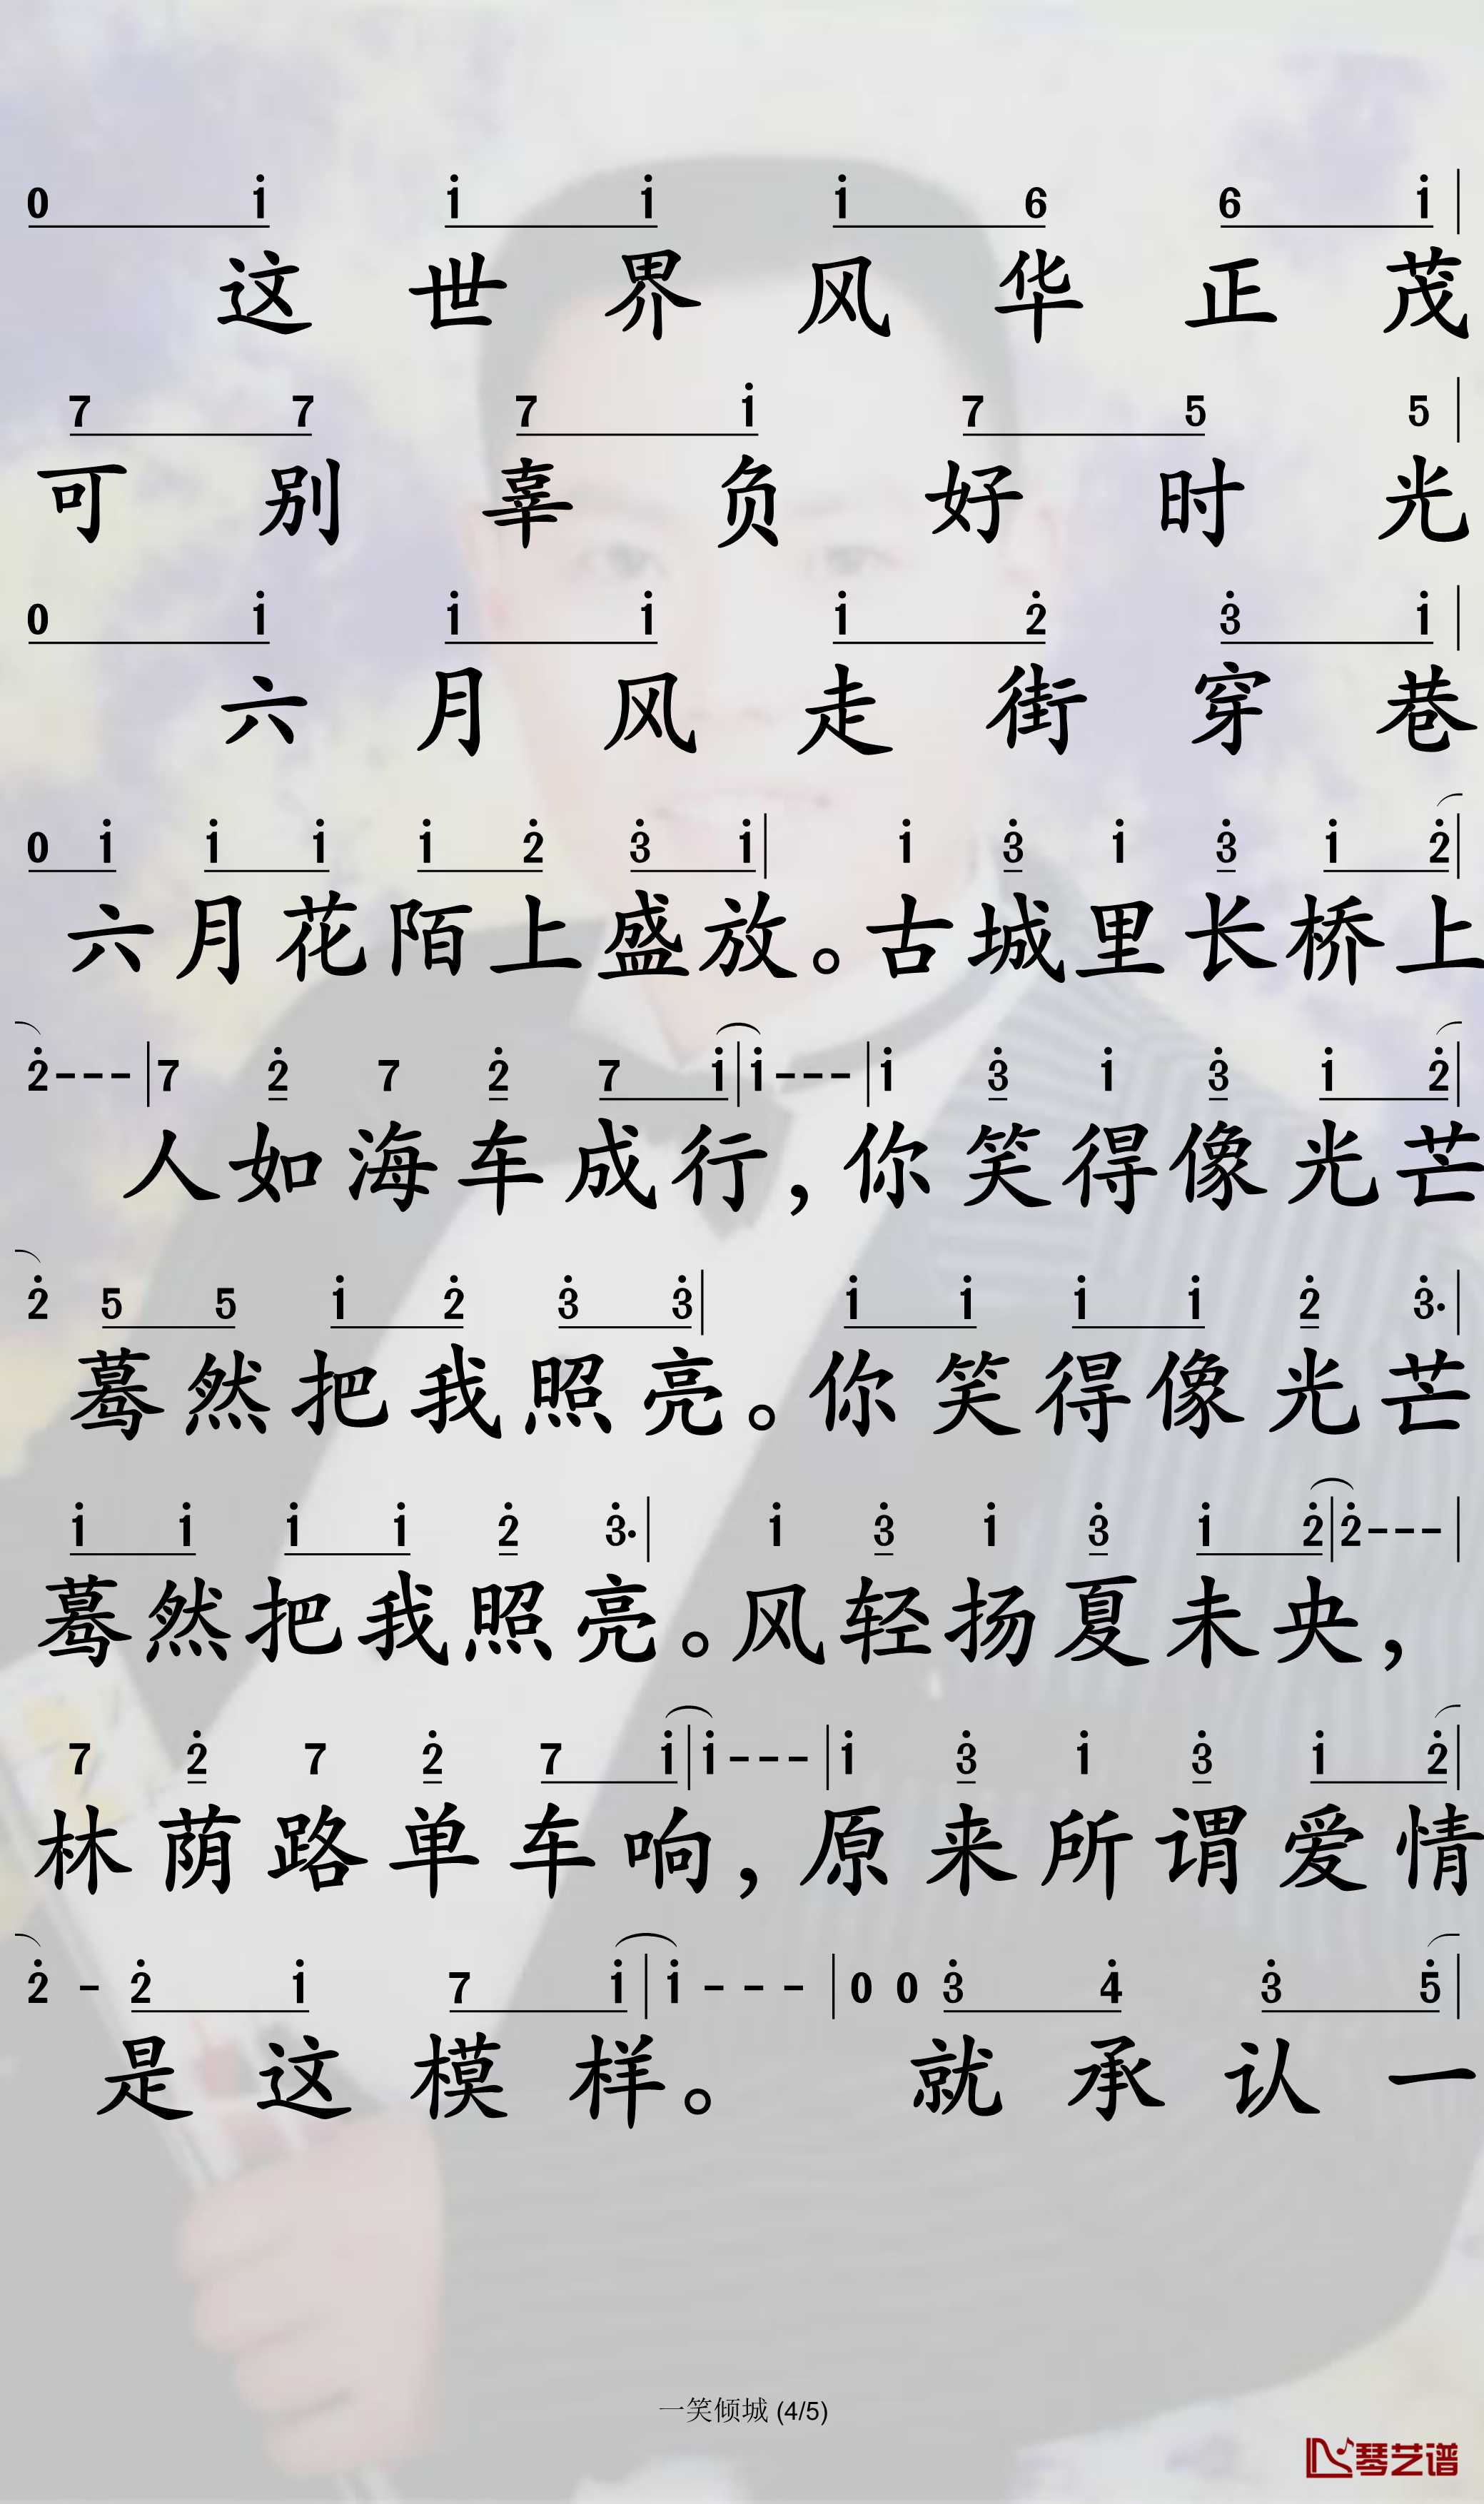 0 i i i i 6 6 i|
这世界风华正茂
7 7 7 i 7 5 5|
可别辜负好时光
0 i i i i 2 3 i|
六月风走街穿巷
0 i i i i 2 3 i| i 3 i 3 i 2|
六月花陌上盛放。古城里长桥上
2---|7 2 7 2 7 i|i---|i 3 i 3 i 2|
人如海车成行，你笑得像光芒
2 5 5 i 2 3 3| i i i i 2 3·|
蓦然把我照亮。你笑得像光芒
i i i i 2 3·| i 3 i 3 i 2|2---|
蓦然把我照亮。风轻扬夏未央，
7 2 7 2 7 i|i---|i 3 i 3 i 2|
林荫路单车响，原来所谓爱情
2 - 2 i 7 i|i - - -|0 0 3 4 3 5|
是这模样。 就承认一
一笑倾城 (4/5)
琴艺谱